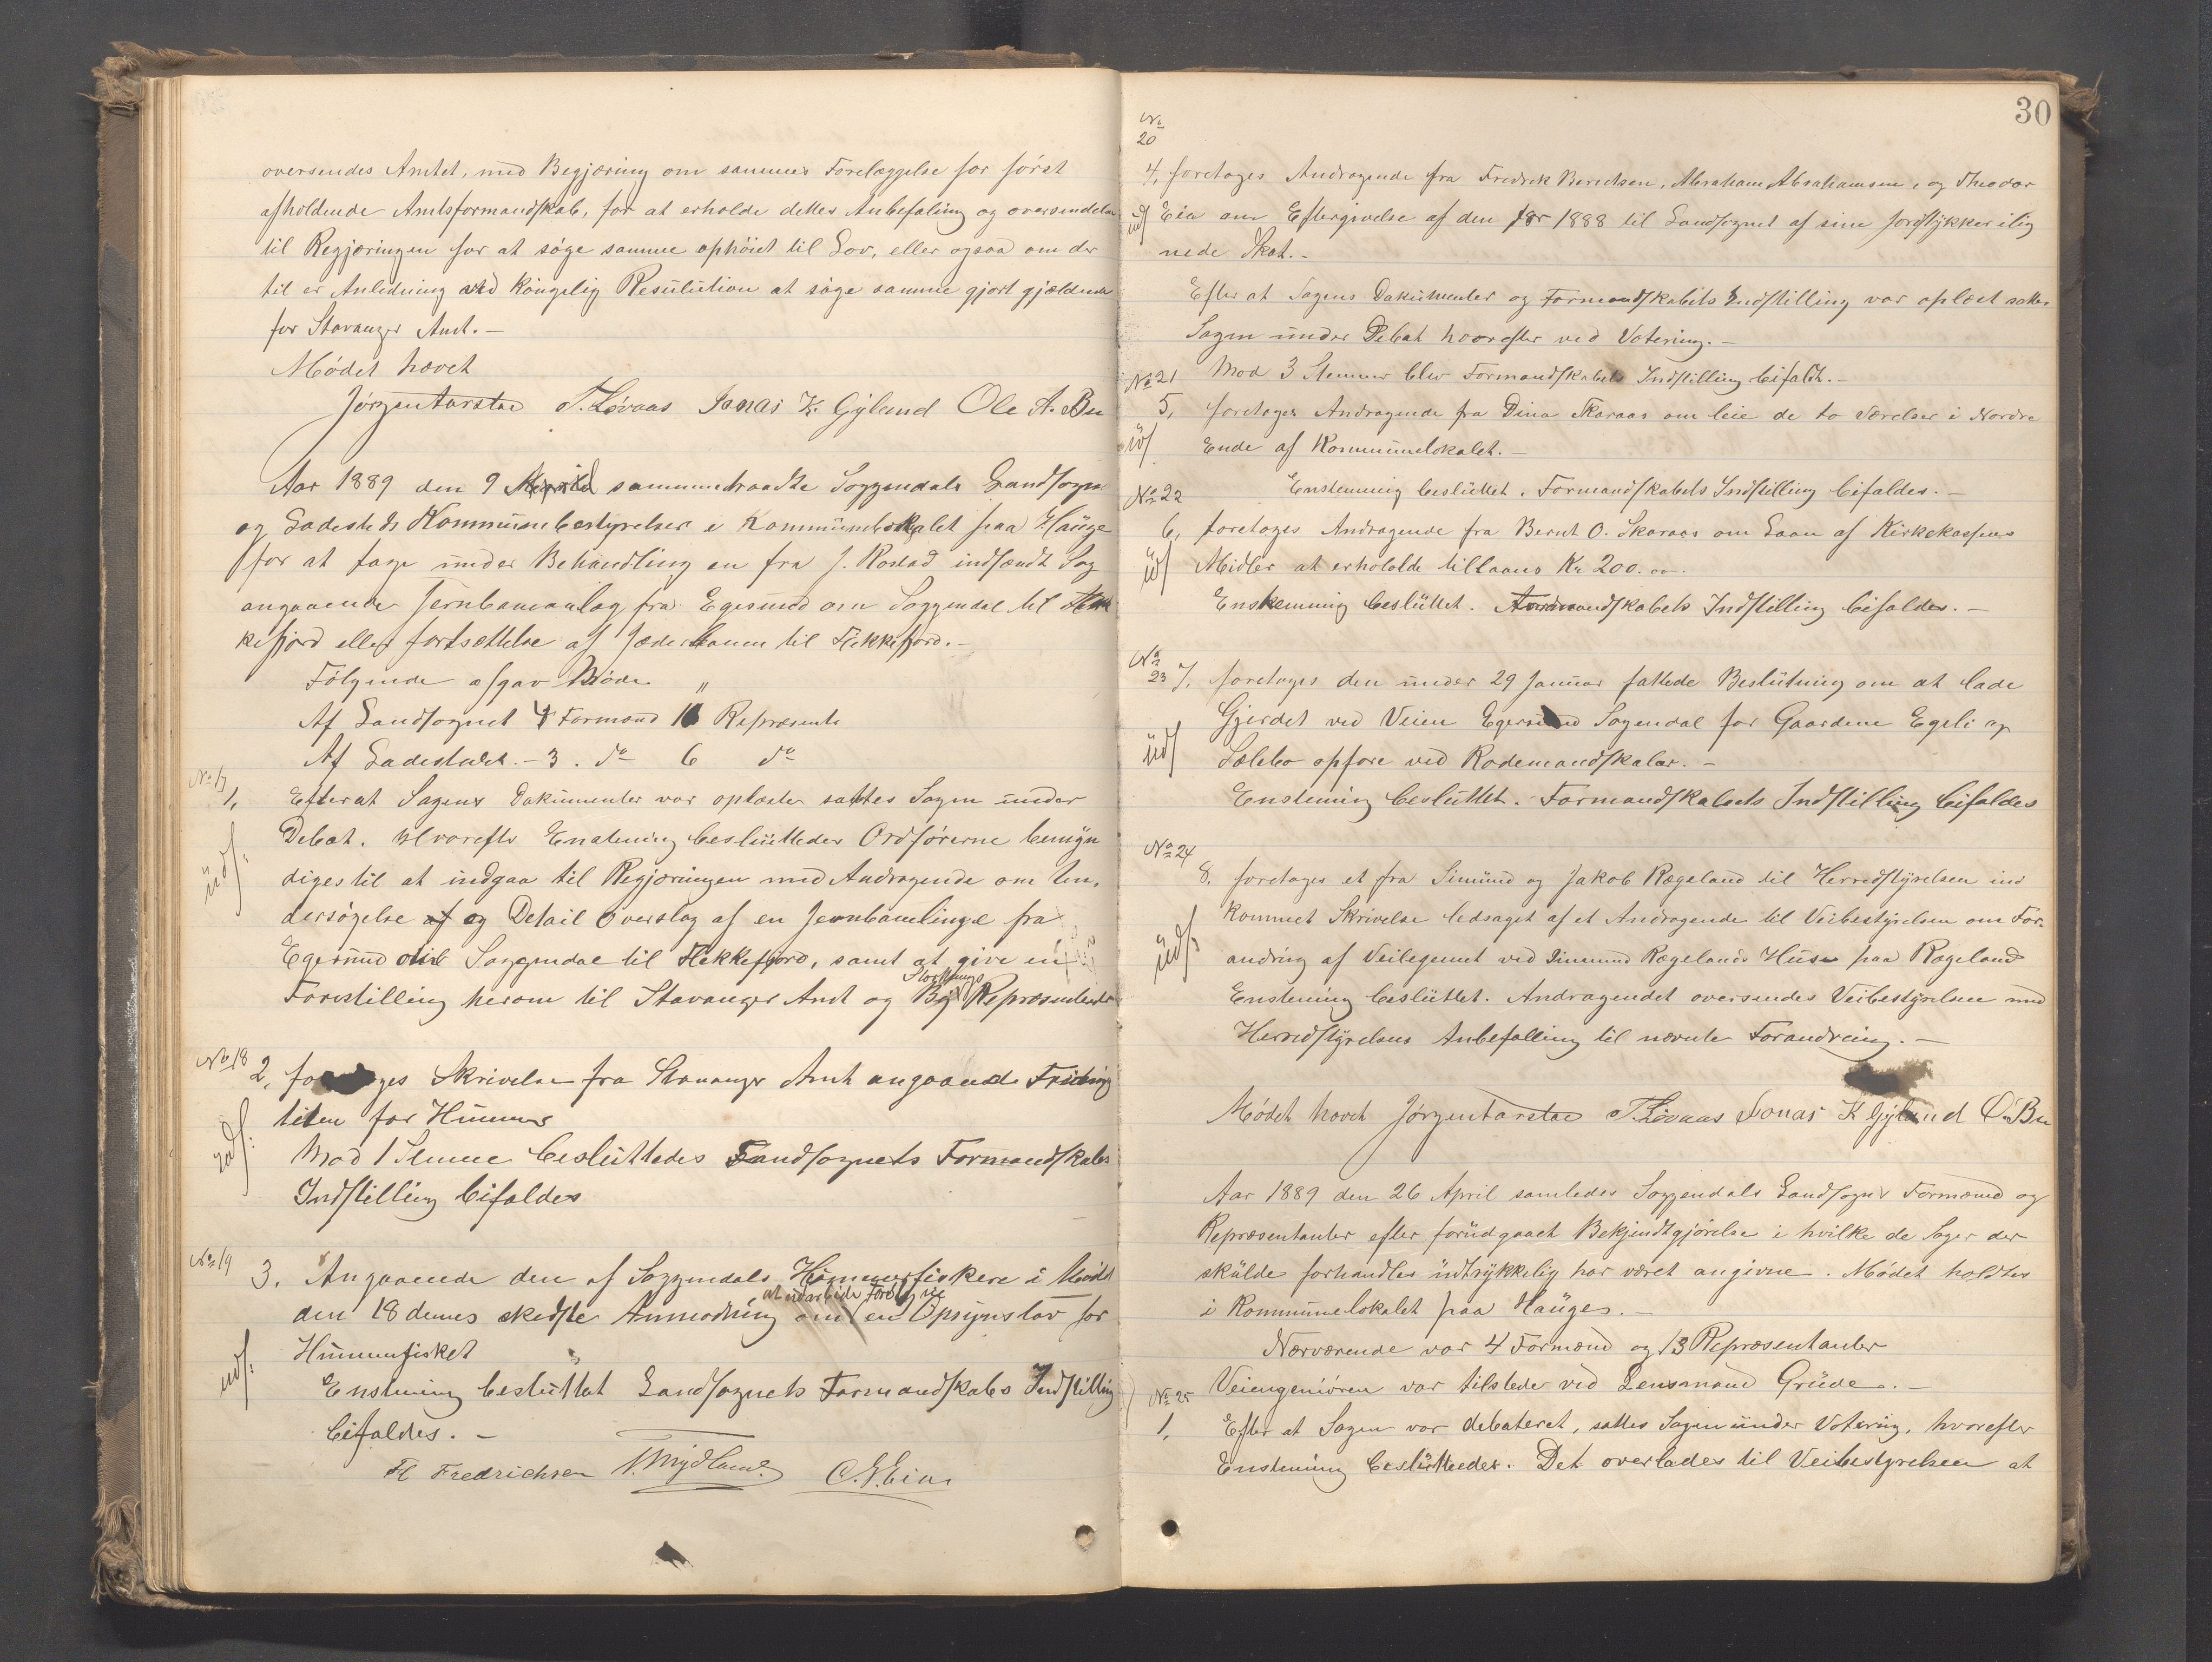 oversendes Amtet, med Begjæring om sammes Forelæggelse for først
afholdende Amtsformandskab, for at erholde dettes Anbefaling og oversendelse
til Regjæringen for at søge samme ophöiet til Lov, eller ogsaa om der
til er Anledning ved Kongelig Resulution at søge samme gjort gjældende
for Stavanger Amt. –
Mödet hævet
T. Lövaas Jonas K. Gyland Ole A. Bu
Aar 1889 den 9 April sammentraadte Soggendals Landsogn
og Ladesteds Kommunebestyrelser i Kommunelokalet paa Hauge
for at tage under Behandling en fra J. Rostad indsendt Sag
angaaende Jernbaneanlæg fra Egersund om Soggendal til Flek
kefjord eller fortsættelse af Jæderbanen til Flekkefjord. –
Fölgende afgav Möde
Af Landsognet 4 Formænd 11 Repræsent
Af Ladestedet. – 3. do 6 do
No 17
1, Efterat Sagens Dokumenter var oplæste sattes Sagen under
Debat. Hvorefter Enstemig besluttedes Ordførerne bemyn
diges til at indgaa til Regjæringen med Andragende om Un,
dersøgelse af og Detail Overslag af en Jernbanelinge fra
Egersund over Soggendal til Flekkefjord, samt at give en
Stortings
Forestilling herom til Stavanger Amt og By Repræsentanter
udf.
No 18 2, foretages Skrivelse fra Stavanger Amt angaaende Fridnings
tiden for Hummer
Mod 1 Stemme besluttedes Landsognets Formandskabs
Indstilling bifaldes
udf.
No 19 3. Angaaende den af Soggendals Hummerfiskere i Mödet
at udarbeide Forslag til
den 18 dennes skedste Anmodning om en Opsynslov for
Hummerfisket
udf.
Enstemig besluttet Landsognets Formandskabs Indstilling
bifaldes. –
Fredrichsen
30
No
20
4, foretages Andragende fra Fredrik Berentsen, Abraham Abrahamsen, og Theodor
udf Eia om Eftergivelse af den for 1888 til Landsognet af sine Jordstykker ilig
nede Skat. –
Efter at Sagens Dokumenter og Formandskabets Indstilling var oplæst sattes
Sagen under Debat hvorefter ved Votering. –
No 21 Mod 3 Stemmer blev Formandskabets Indstilling bifaldt. –
5, foretages Andragende fra Dina Skaraas om leie de to Værelser i Nordre
udf Ende af Kommunelokalet. –
No 22 Enstemig besluttet. Formandskabets Indstilling bifaldes. –
6, foretages Andragende fra Bernt O. Skaraas om Laan af Kirkekassens
udf Midler at erholde tillaans Kr 200.00.
Enstemmig besluttet. Formandskabets Indstilling bifaldes. –
No
23 7, foretages den under 29 Januar fattede Beslutning om at lade
Gjerdet ved Veien Egersund Sogendal for Gaardene Egeli og
udf Sælebo opføre ved Rodemandskaber. –
Enstemig besluttet. Formandskabets Indstilling bifaldes
No 24
8, foretages et fra Simund og Jakob Rægeland til Herredstyrelsen ind
kommet Skrivelse ledsaget af et Andragende til Veibestyrelsen om For-
udf andring af Veilegemet ved Simund Rægelands Huse paa Rægeland
Enstemig besluttet. Andragendet oversendes Veibestyrelsen med
Herredstyrelsens Anbefalling til nævnte Forandring. –
Mödet hævet T. Lövaas Jonas K Gyland O. Bu
Aar 1889 den 26 April samledes Soggendals Landsogns Formænd og
Repræsentanter efter forudgaaet Bekjendtgjørelse i hvilke de Sager der
skulde forhandles udtrykkelig har været angivne. Mödet holdtes
i Kommunelokalet paa Hauges. –
Nærværende var 4 Formænd og 13 Repræsentanter
No 25 Veiengeniören var tilstede ved Lensmand Grude. –
1, Efter at Sagen var debateret, sattes Sagen under Votering, hvorefter
Enstemig besluttedes. Det overlades til Veibestyrelsen at